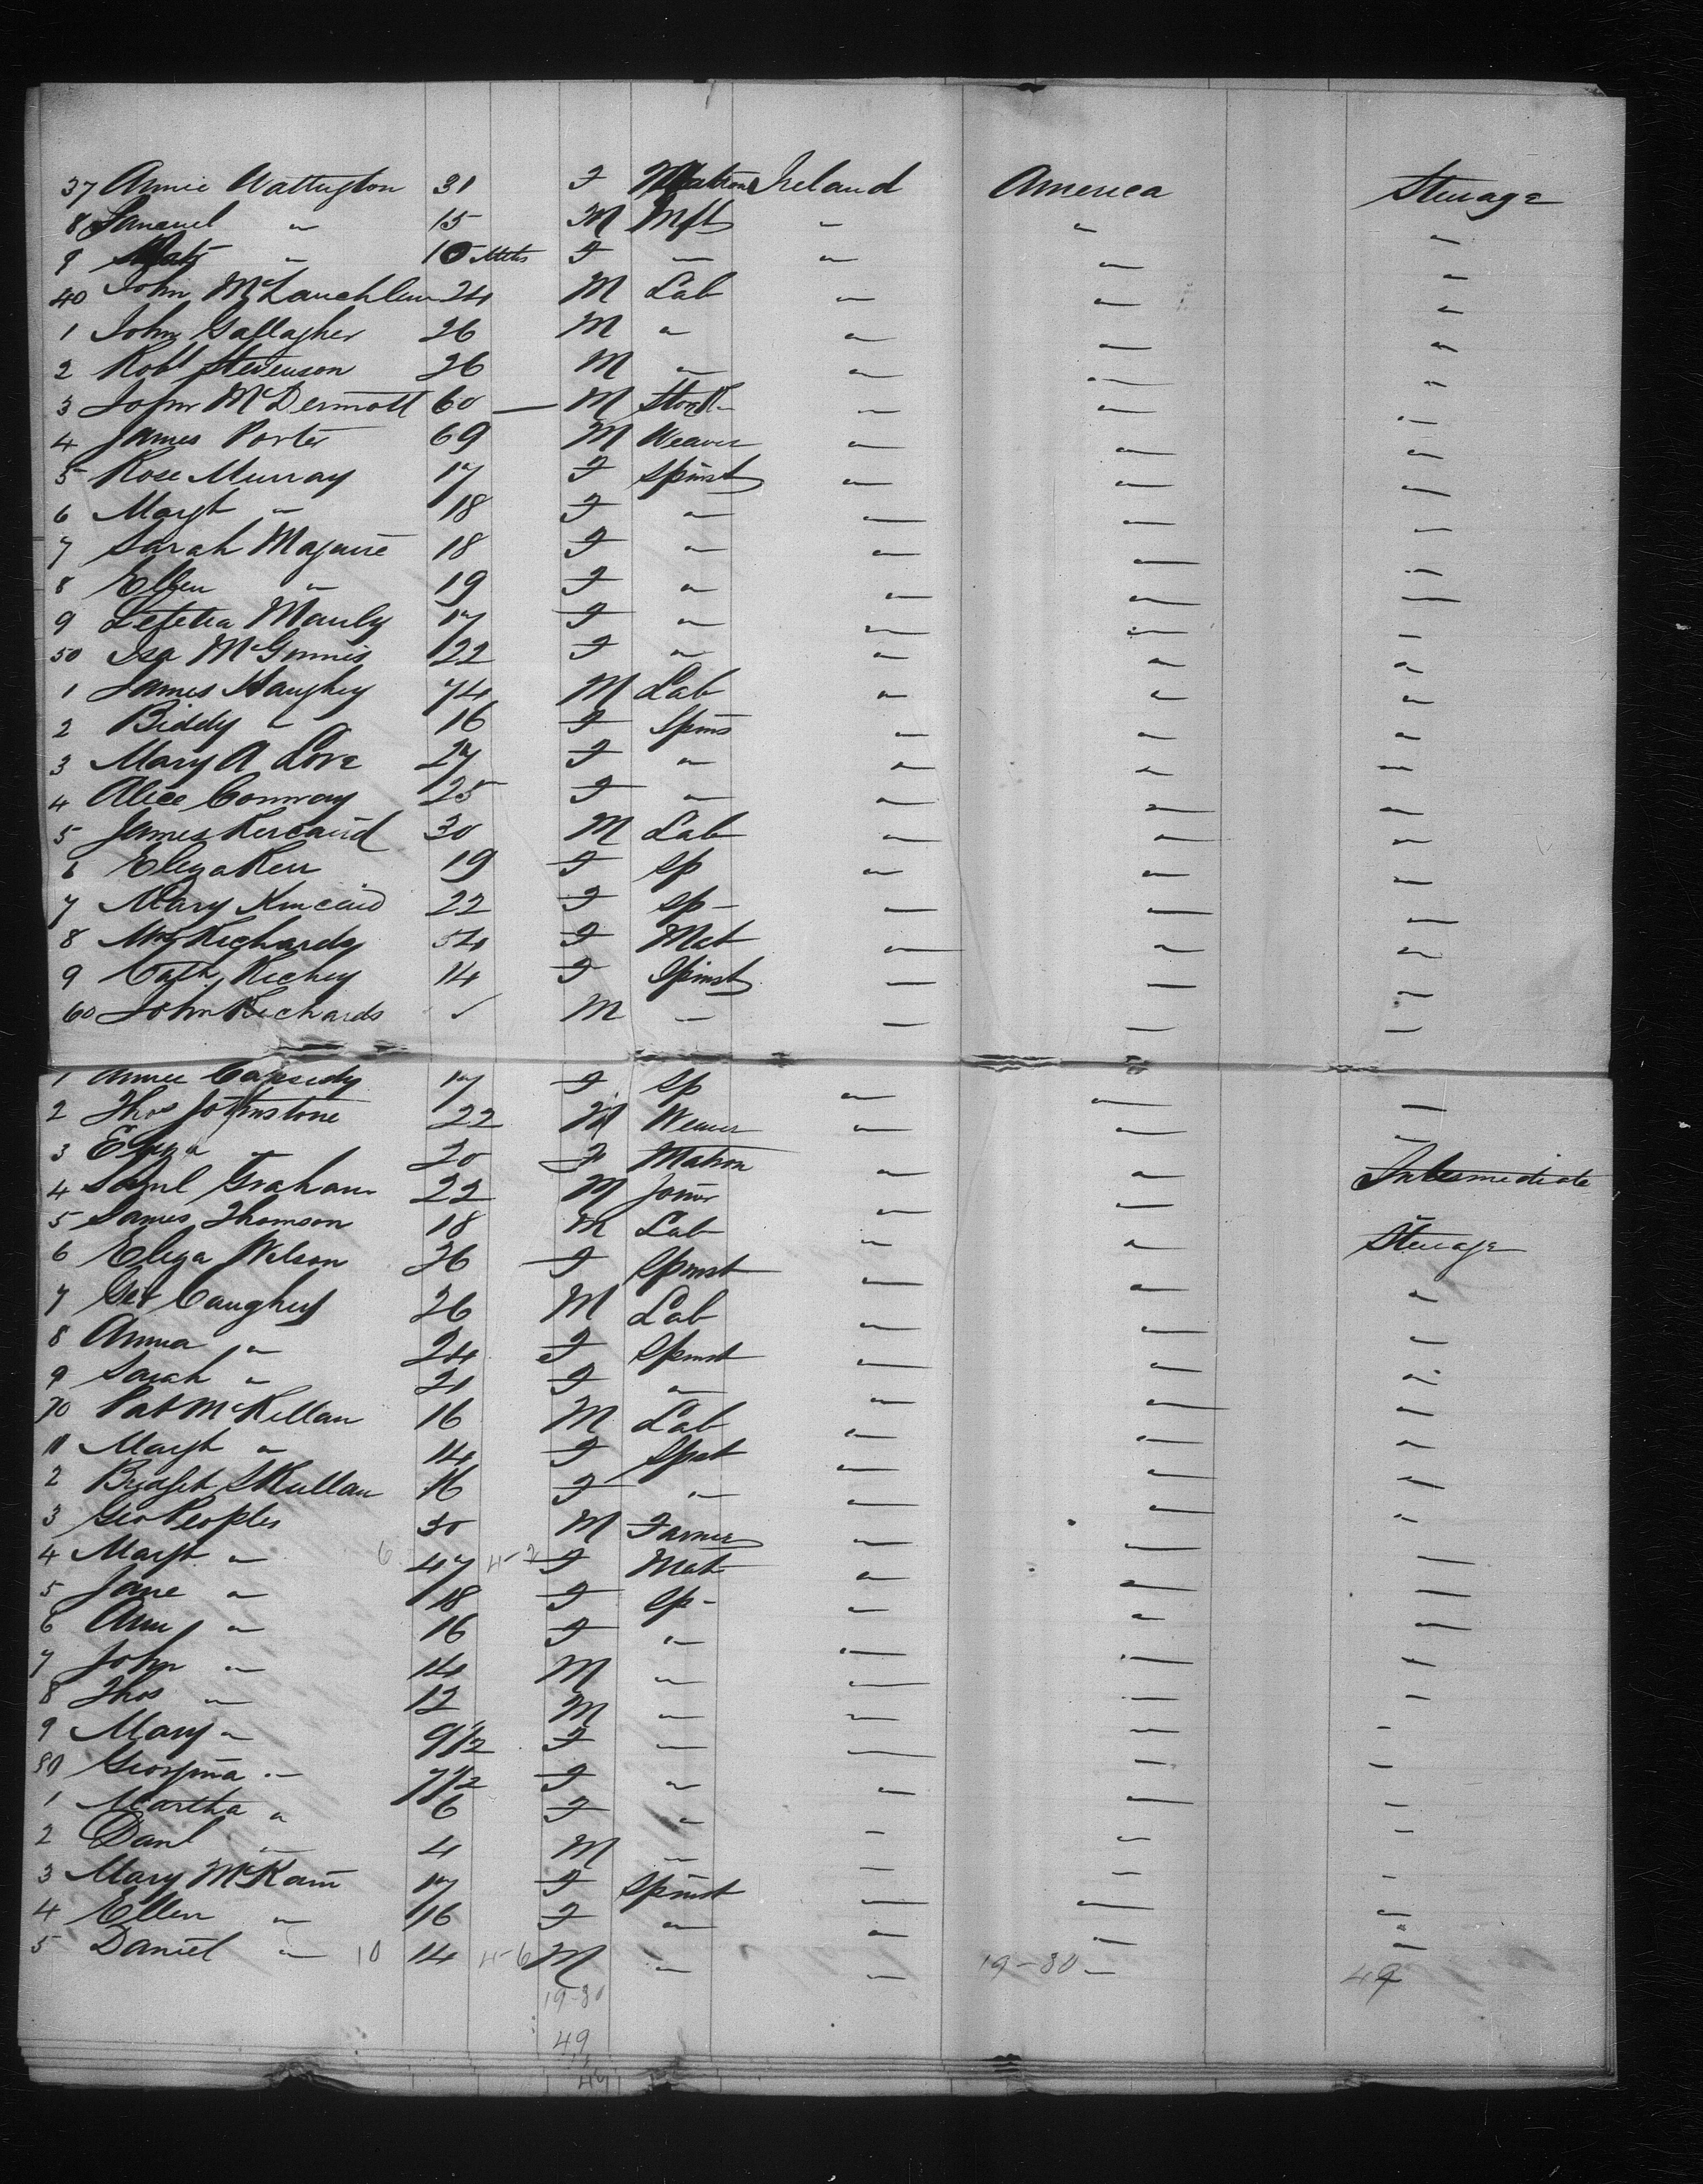 37 Annie Wattington 31 F Matron Ireland America Steerage
8 Samuel " 15 M "
9 " 10 Mths F " "
40 John McLauchlin 24 M Lab " " "
1 John Gallagher 26 M " " " "
2 Robt Stevenson 26 M " " " "
3 John McDermott 60 — M " " "
4 James Porter 69 M Weaver " " "
5 Rose Murray 17 F Spinst " " "
6 Margt " 18 F " " " "
7 Sarah Maguire 18 F " " " "
8 Ellen " 19 F " " " "
9 Letetia Manly 17 F " " " "
50 Isa McGinnis 22 F " " " "
1 James Haughey 74 M Lab " " "
2 Biddy " 16 F Spins " " "
3 Mary A Love 27 F " " " "
4 Alice Conway 25 F " " " "
5 James 30 M Lab " " "
6 Eliza Kerr 19 F Sp " " "
7 Mary Kincaid 22 F Sp - " " "
8 Richards 54 F Mat " " "
9 Cath Richey 14 F Spinst " " "
60 John Richards ✓ M " " " "
1 Annie Cassidy 17 F Sp " " "
2 Thos Johnstone 22 M Weaver " " "
3 Eliza " 20 F Matron " "
4 Saml Graham 22 M Joiner " " Intermediate
5 James Thomson 18 M Lab " " Steerage
6 Eliza Wilson 26 F Spinst " " "
7 Caughey 26 M Lab " " "
8 Anna " 24 F Spinst " " "
9 Sarah " 21 F " " " "
70 Pat McKellan 16 M Lab " " "
11 Margt " 14 F Spst " " "
2 Bridget Skullan 16 F " " " "
3 Geo Peoples 50 M Farmer " " "
4 Margt " 6 47 4-2 F Mat " " "
5 Jane " 18 F Sp - " " "
6 Ann " 16 F " " " "
7 John " 14 M " " " "
8 Thos " 12 M " " " "
9 Mary " 9 1/2 F " " " "
80 Georgina " 7 1/2 F " " " "
1 Martha " 6 F " " " "
2 Danl " 4 M " " " "
3 Mary McKain 17 F Spinst " " "
4 Ellen " 16 F " " " "
5 Daniel " 10 14 4-6 M " " 19-30 " 49
19-30
49